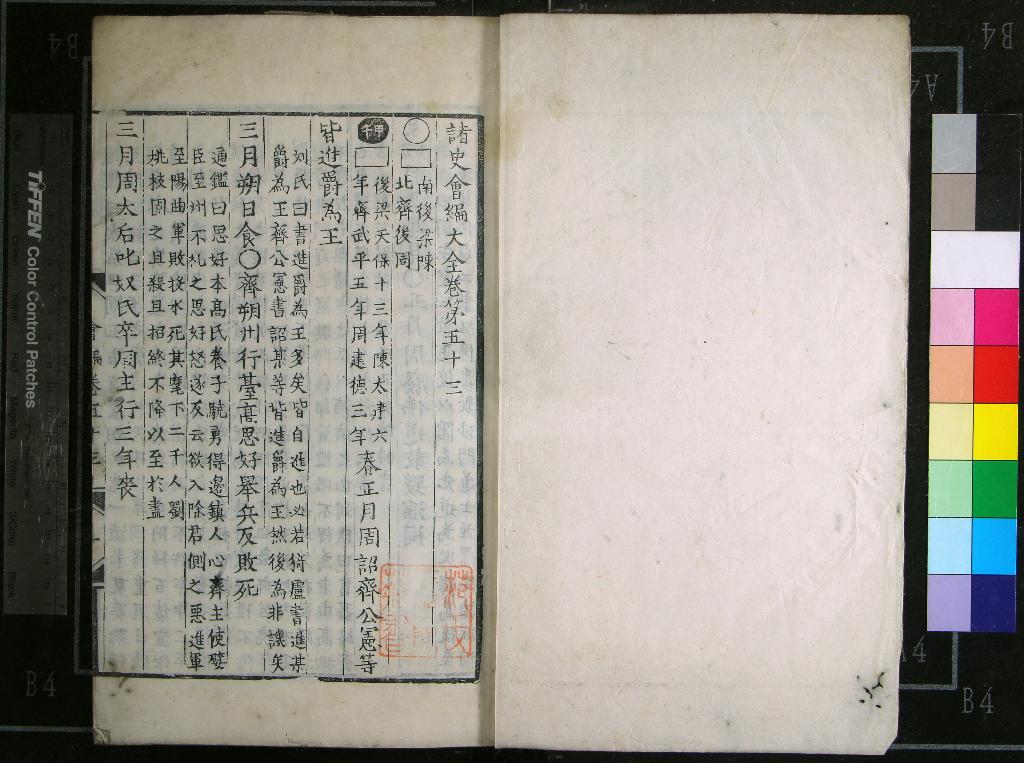 諸史會編大全卷第五十三
南後梁陳
北齊後周
甲午
後梁天保十三年陳太建六
年齊武平五年周建德三年
春正月周詔齊公憲等
皆進爵為王
刘氏曰書進爵為王多矣皆自進也必若猗盧書進某
爵為王齊公憲書詔某等皆進爵為王然後為非譏矣
三月朔日食〇齊朔州行臺高思好舉兵反敗死
通鑑曰思好本高氏養子驍勇得邊鎮人心齊主使嬖
臣至州不礼之思好怒遂反云欲入除君側之惡進軍
至陽曲軍敗投水死其麾下二千人劉
桃枝圍之且殺且招終不降以至於盡
三月周太后叱奴氏卒周主行三年喪
會編卷五十三
TIFFEN Color Control Patches
B4
B4
A4
A4
B4
B4